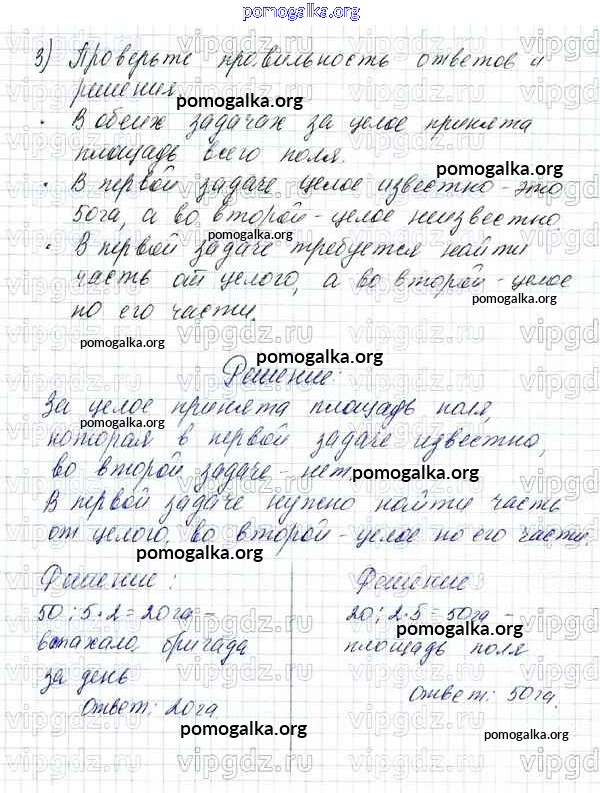 pomogalka.org
3) Проверьте правильность ответов и
решения.
pomogalka.org
· В обеих задачах за целое принята
площадь всего поля.
pomogalka.org
· В первой задаче целое известно - это
50га, а во второй - целое неизвестно.
pomogalka.org
· В первой задаче требуется найти
часть от целого, а во второй - целое
по его части.
pomogalka.org
pomogalka.org
Решение:
За целое принята площадь поля,
pomogalka.org
которая в первой задаче известно,
во второй задаче - нет.
pomogalka.org
В первой задаче нужно найти часть
от целого, во второй - целое по его части.
pomogalka.org
Решение:
50 : 5 · 2 = 20га -
вспахало бригада
pomogalka.org
за день
Ответ: 20га.
pomogalka.org
Решение:
20 : 2 · 5 = 50га -
pomogalka.org
площадь поля
Ответ: 50га.
pomogalka.org
vipgdz.ru